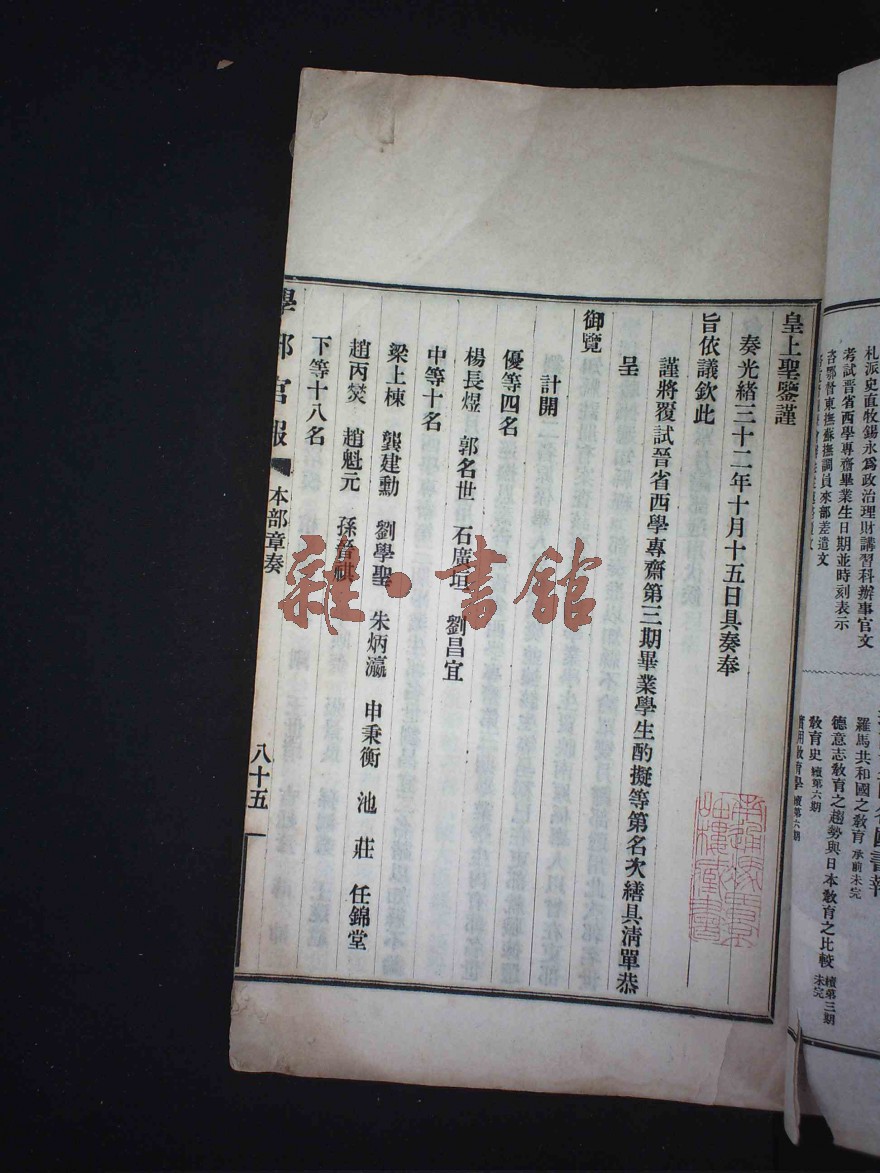 札派史直牧錫永爲政治理財講習科辦事官文
考試晉省西學專齋畢業生日期並時刻表示
咨鄂督東撫蘇撫調員來部差遣文
羅馬共和國之敎育 承前未完
德意志敎育之趨勢與日本敎育之比較 續第三期未完
敎育史 續第六期
皇上聖鑒謹
奏光緒三十二年十月十五日具奏奉
旨依議欽此
謹將覆試晉省西學專齋第三期畢業學生酌擬等第名次繕具清單恭
呈
御覽
計開
優等四名
楊長煜 郭名世 石廣垣 劉昌宜
中等十名
梁上棟 龔建勳 劉學聖 朱炳瀛 申秉衡 池莊 任錦堂
趙丙燮 趙魁元 孫晉祺
下等十八名
學部官報 本部章奏 八十五
雜·書館